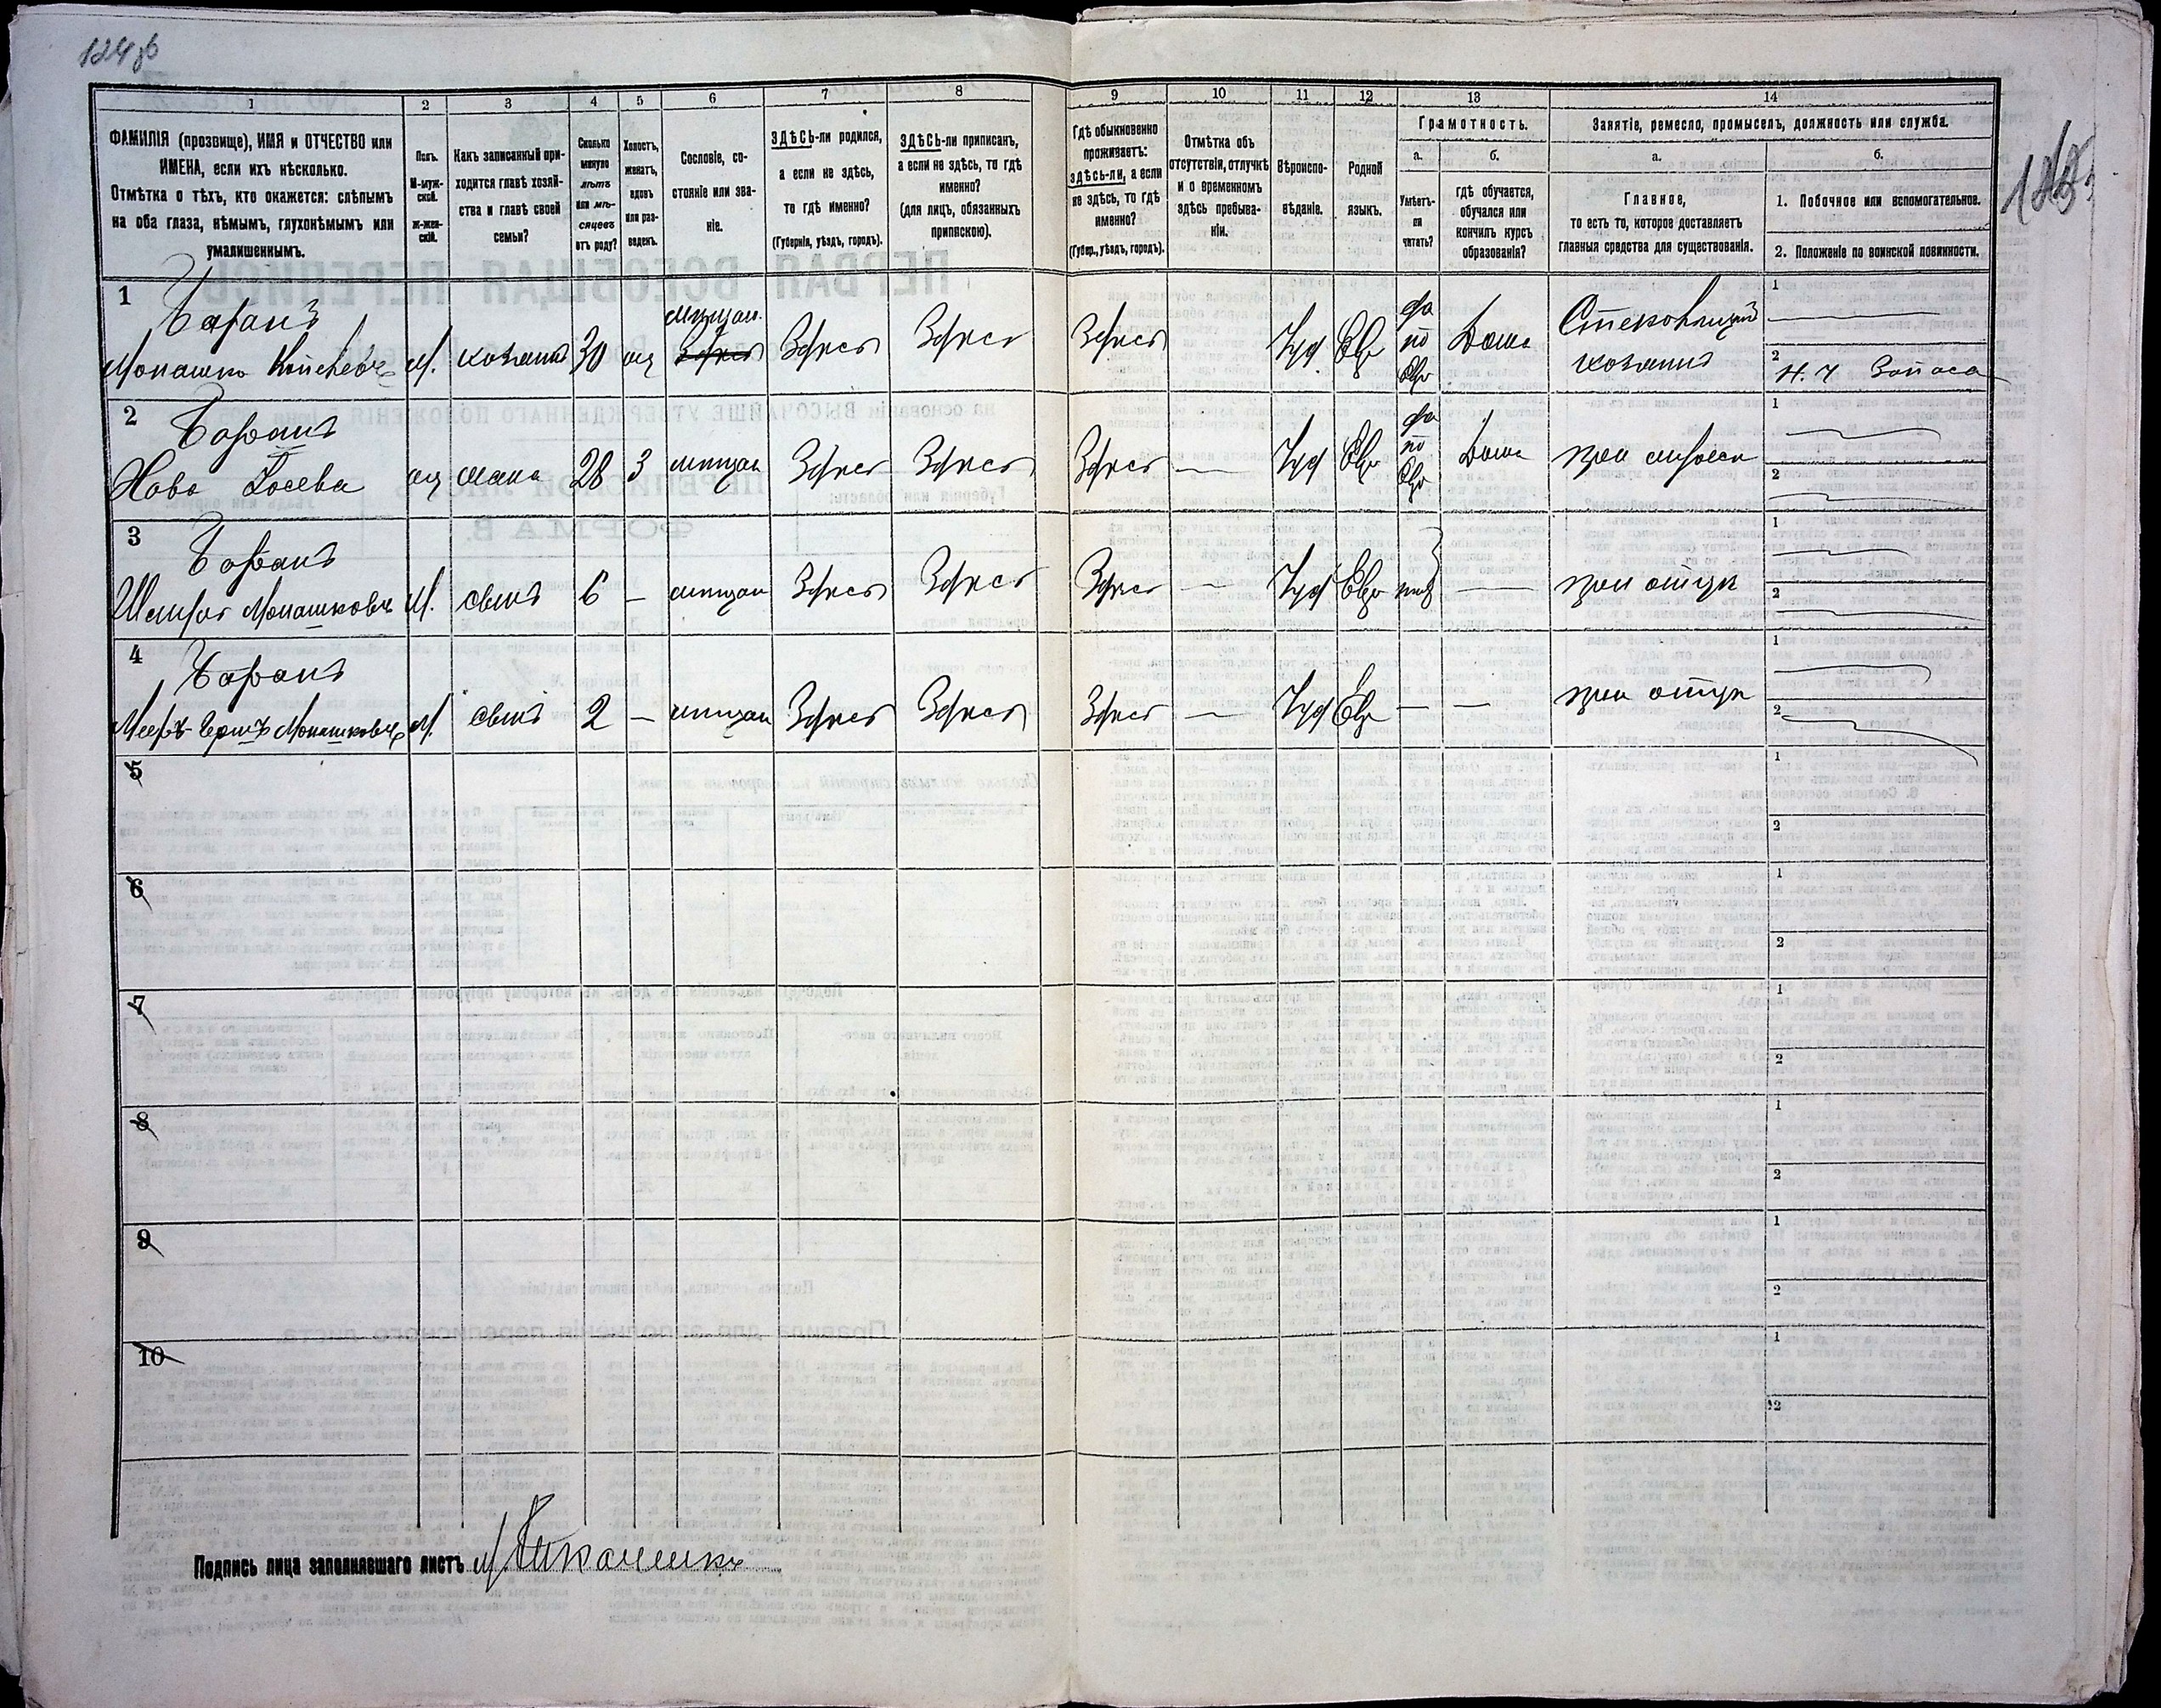 124об
1 2 3 4 5 6 7 8 9 10 11 12 13 14
ФАМИЛІЯ (прозвище), ИМЯ и ОТЧЕСТВО или
ИМЕНА, если ихъ нѣсколько.
Отмѣтка о тѣхъ, кто окажется: слѣпымъ
на оба глаза, нѣмымъ, глухонѣмымъ или
умалишеннымъ.
Полъ.
М-муж-
ской.
Ж-жен-
скій.
Какъ записанный при-
ходится главѣ хозяй-
ства и главѣ своей
семьи?
Сколько
минуло
лѣтъ
или мѣ-
сяцевъ
отъ роду?
Холостъ,
женатъ,
вдовъ
или раз-
веденъ.
Сословіе, со-
стояніе или зва-
ніе.
ЗДѢСЬ-ли родился,
а если не здѣсь,
то гдѣ именно?
(Губернія, уѣздъ, городъ).
ЗДѢСЬ-ли приписанъ,
а если не здѣсь, то гдѣ
именно?
(для лицъ, обязанныхъ
припискою).
Гдѣ обыкновенно
проживаетъ:
здѣсь-ли, а если
не здѣсь, то гдѣ
именно?
(Губер., уѣздъ, городъ).
Отмѣтка объ
отсутствіи, отлучкѣ
и о временномъ
здѣсь пребыва-
ніи.
Вѣроиспо-
вѣданіе.
Родной
языкъ.
Грамотность.
а.
Умѣетъ-
ли
читать?
б.
гдѣ обучается,
обучался или
кончилъ курсъ
образованія?
Занятіе, ремесло, промыселъ, должность или служба.
а.
Главное,
то есть то, которое доставляетъ
главныя средства для существованія.
б.
1. Побочное или вспомогательное.
2. Положеніе по воинской повинности.
1 Баранъ
Монашко М. хозяинъ 30 жц мѣщан. Здѣсь Здѣсь Здѣсь Іуд Евр да по Евр Дома
хозяинъ
1
2 Н. Ч Запаса
2 Баранъ
Хава Іосева жц жена 28 З мѣщан Здѣсь Здѣсь Здѣсь — Іуд Евр да по Евр Дома при мужѣ
1
2
3 Баранъ
Монашковъ М. сынъ 6 — мѣщан Здѣсь Здѣсь Здѣсь — Іуд Евр нѣтъ — при отцѣ
1
2
4 Баранъ
Мееръ-Гершъ Монашковъ М. сынъ 2 — мѣщан Здѣсь Здѣсь Здѣсь — Іуд Евр — — при отцѣ
1
2
5
1
2
6
1
2
7
1
2
8
1
2
9
1
2
10
1
2
Подпись лица заполнявшаго листъ